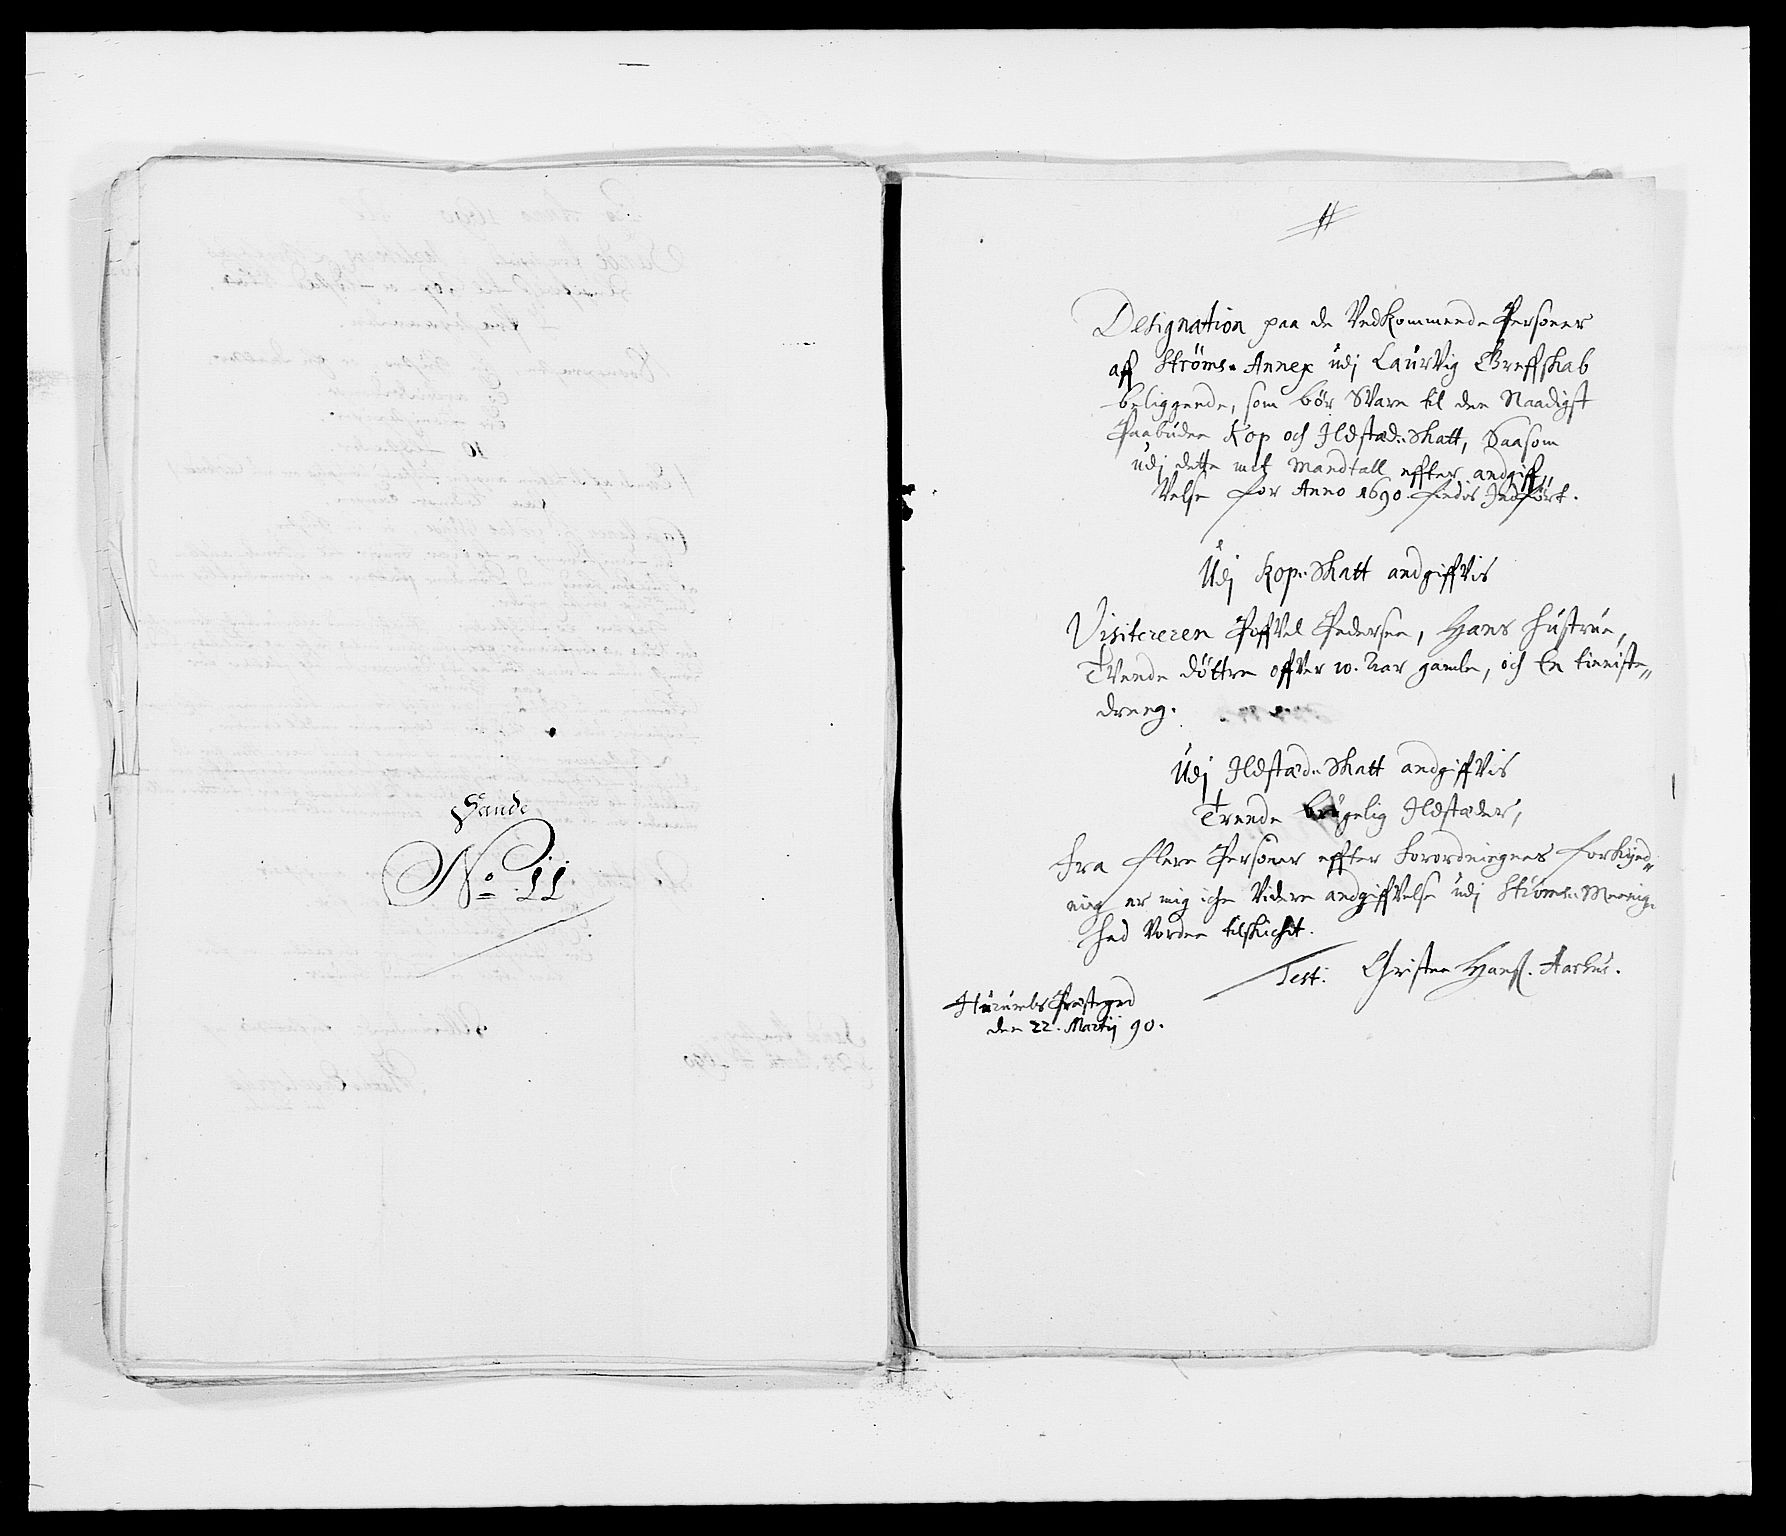 Sande
No 11
Designation paa de Vedkommende Personer
aff Strøms Annex udj Laurvig Greffskab
beliggende, som bør Svare til den Naadigst
Paabudne Kop och Ildstæd-Skatt, Saasom
udj dette mit Mandtall effter andgiff-
velse for Anno 1690 findis Indført.
Udj Kop-Skatt andgiffvis
Visitereren Poffvel Pedersen, Hans Hustrue,
Tvende døttre offver 10. Aar gamle, och En tieniste-
dreng.
Udj Ildstæd-Skatt andgiffvis
Trende brugelig Ildstæder,
Fra flere Personer effter Forordningens Forkynd-
ning er mig iche Videre andgiffvelse udj Strøms Meenig-
hed Vorden tilskichet.
Test: Christen Hanss. Aarhus.
Hurumbs Præstegrd
den 22. Martij 90.